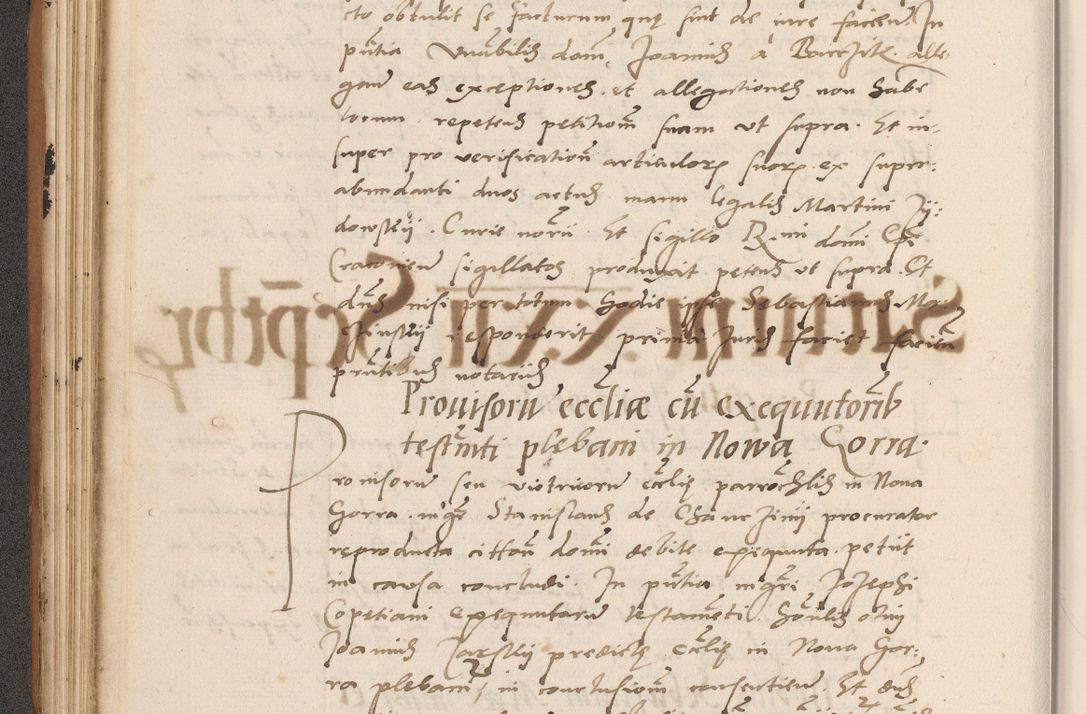 cto obtulit se facturum que sunt de iure faciend. In
pñtia Vnãbilis domi Joannis a Barczik alle
gaũ eas exceptiones et allegationes non habe
locum repetens petitiom suam vt supra. Et in-
super pro verificatioñ articulorꝝ suorꝝ ex super:
abundanti duos actus manu legalis Martini
dowskij. Curie notrij. Et sigillo R.mi domi Epi
Cracouieñ sigillatos produxit petens vt supra. Et
dñs nisi per totum hodie ipse Sebastianus Ma-
responderit prima Juris faciet facien
pñtibus notarijs
Prouisorũ ecclie cũ exequutorib
testmti plebani in Nowa Gorra.
Prouisorum seu victricorũ ecclie parrochlis in Noua
Gorra. mgr Stanislaus de procurator
reproducta cittoñ domi debite exequuta. petijt
in causa concludi. In pñtia mgri Josephi
Copetiani exequutorũ testamẽti. honlis olim
Joannis predicte Ecclie in Noua Gor-
ra plebani, in conclusiom consentieñ. Et dñs